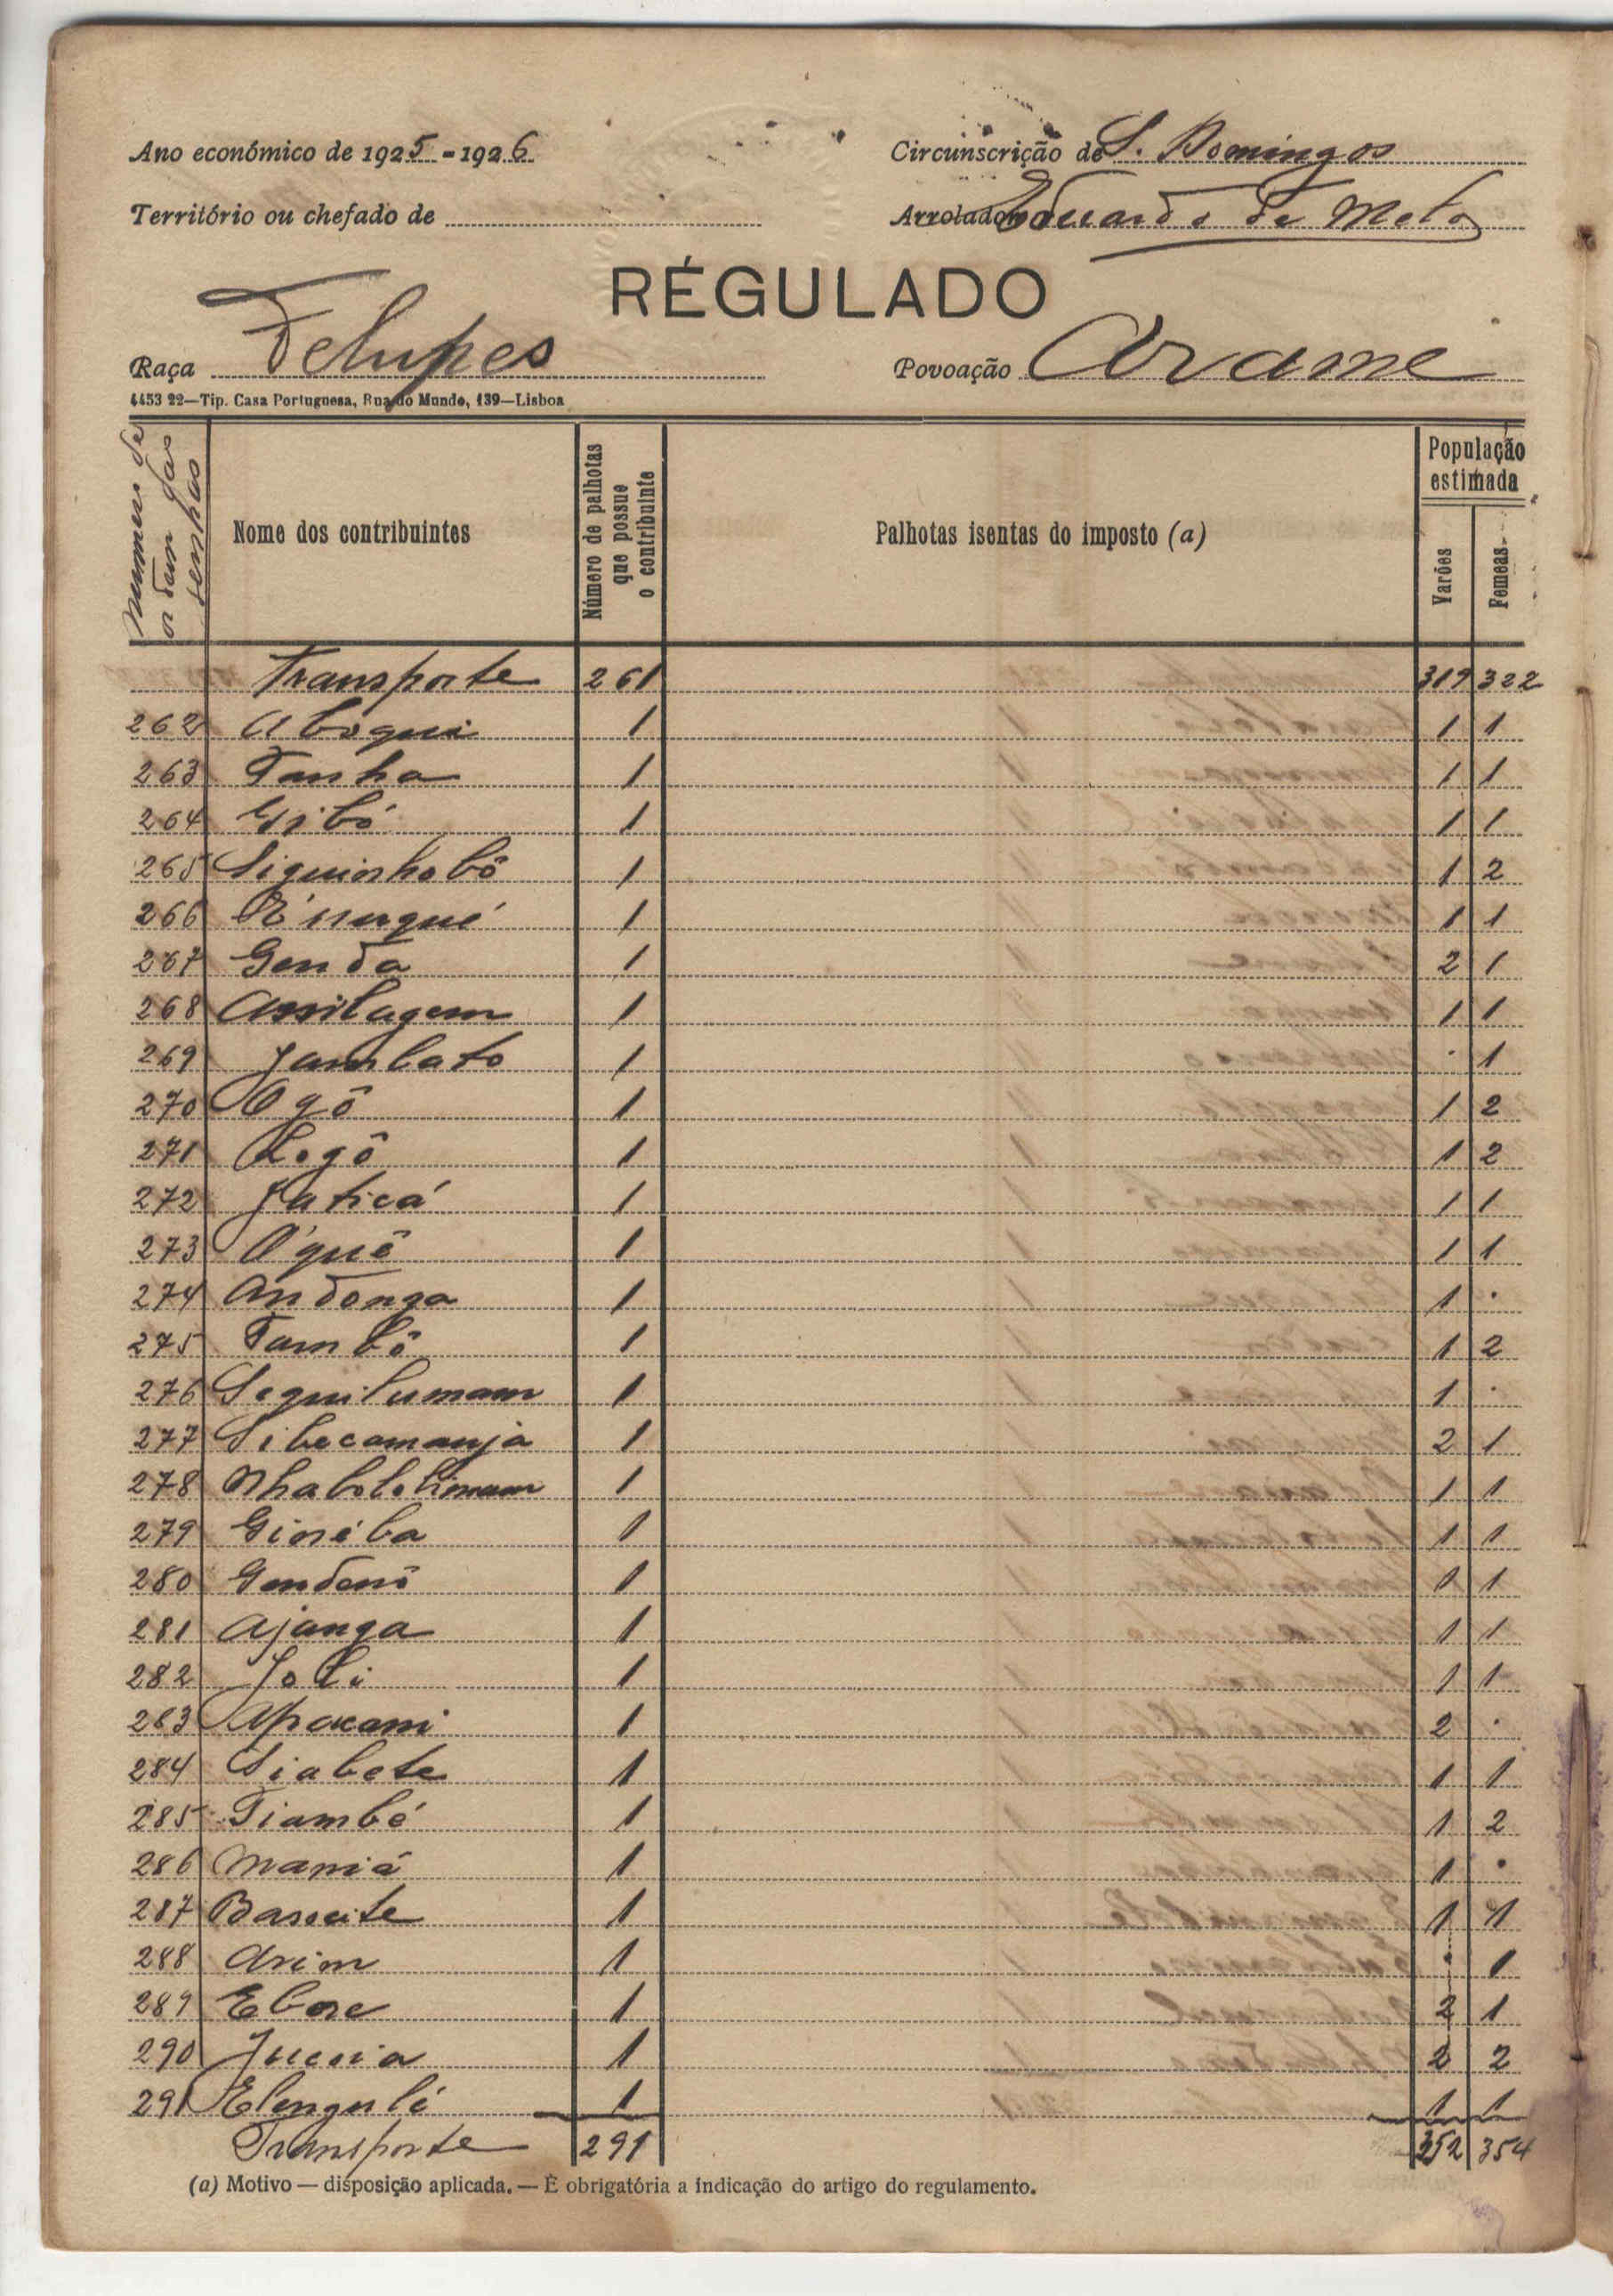 Ano económico de 1925-1926
Circunscrição de S. Domingos
Território ou chefado de
Arrolador Eduardo de Melo
RÉGULADO
Raça Felupes
Povoação Arame
4453 22—Tip. Casa Portuguesa, Rua do Mundo, 139—Lisboa
Numeros de ordem das senhas
Nome dos contribuintes
Número de palhotas que possue o contribuinte
Palhotas isentas do imposto (a)
População estimada
Varões
Femeas
Transporte 261 319 322
262 Aboqui 1 1 1
263 Tanha 1 1 1
264 Gibó 1 1 1
265 Siguinhobô 1 1 2
266 1 1 1
267 Genda 1 2 1
268 Assilagem 1 1 1
269 Jambato 1 . 1
270 Ogô 1 1 2
271 Logô 1 1 2
272 Jaticá 1 1 1
273 O'quê 1 1 1
274 Andonga 1 1 .
275 Tambô 1 1 2
276 Sequilumam 1 1 .
277 Sibecamanja 1 2 1
278 1 1 1
279 Ginéba 1 1 1
280 Gendenô 1 1 1
281 Ajanga 1 1 1
282 Joli 1 1 1
283 Apacani 1 2 .
284 Siabete 1 1 1
285 Tiambé 1 1 2
286 Maniá 1 1 .
287 1 1 1
288 Arim 1 . 1
289 Ebore 1 2 1
290 1 2 2
291 Elengulé 1 1 1
Transporte 291 352 354
(a) Motivo — disposição aplicada. — É obrigatória a indicação do artigo do regulamento.